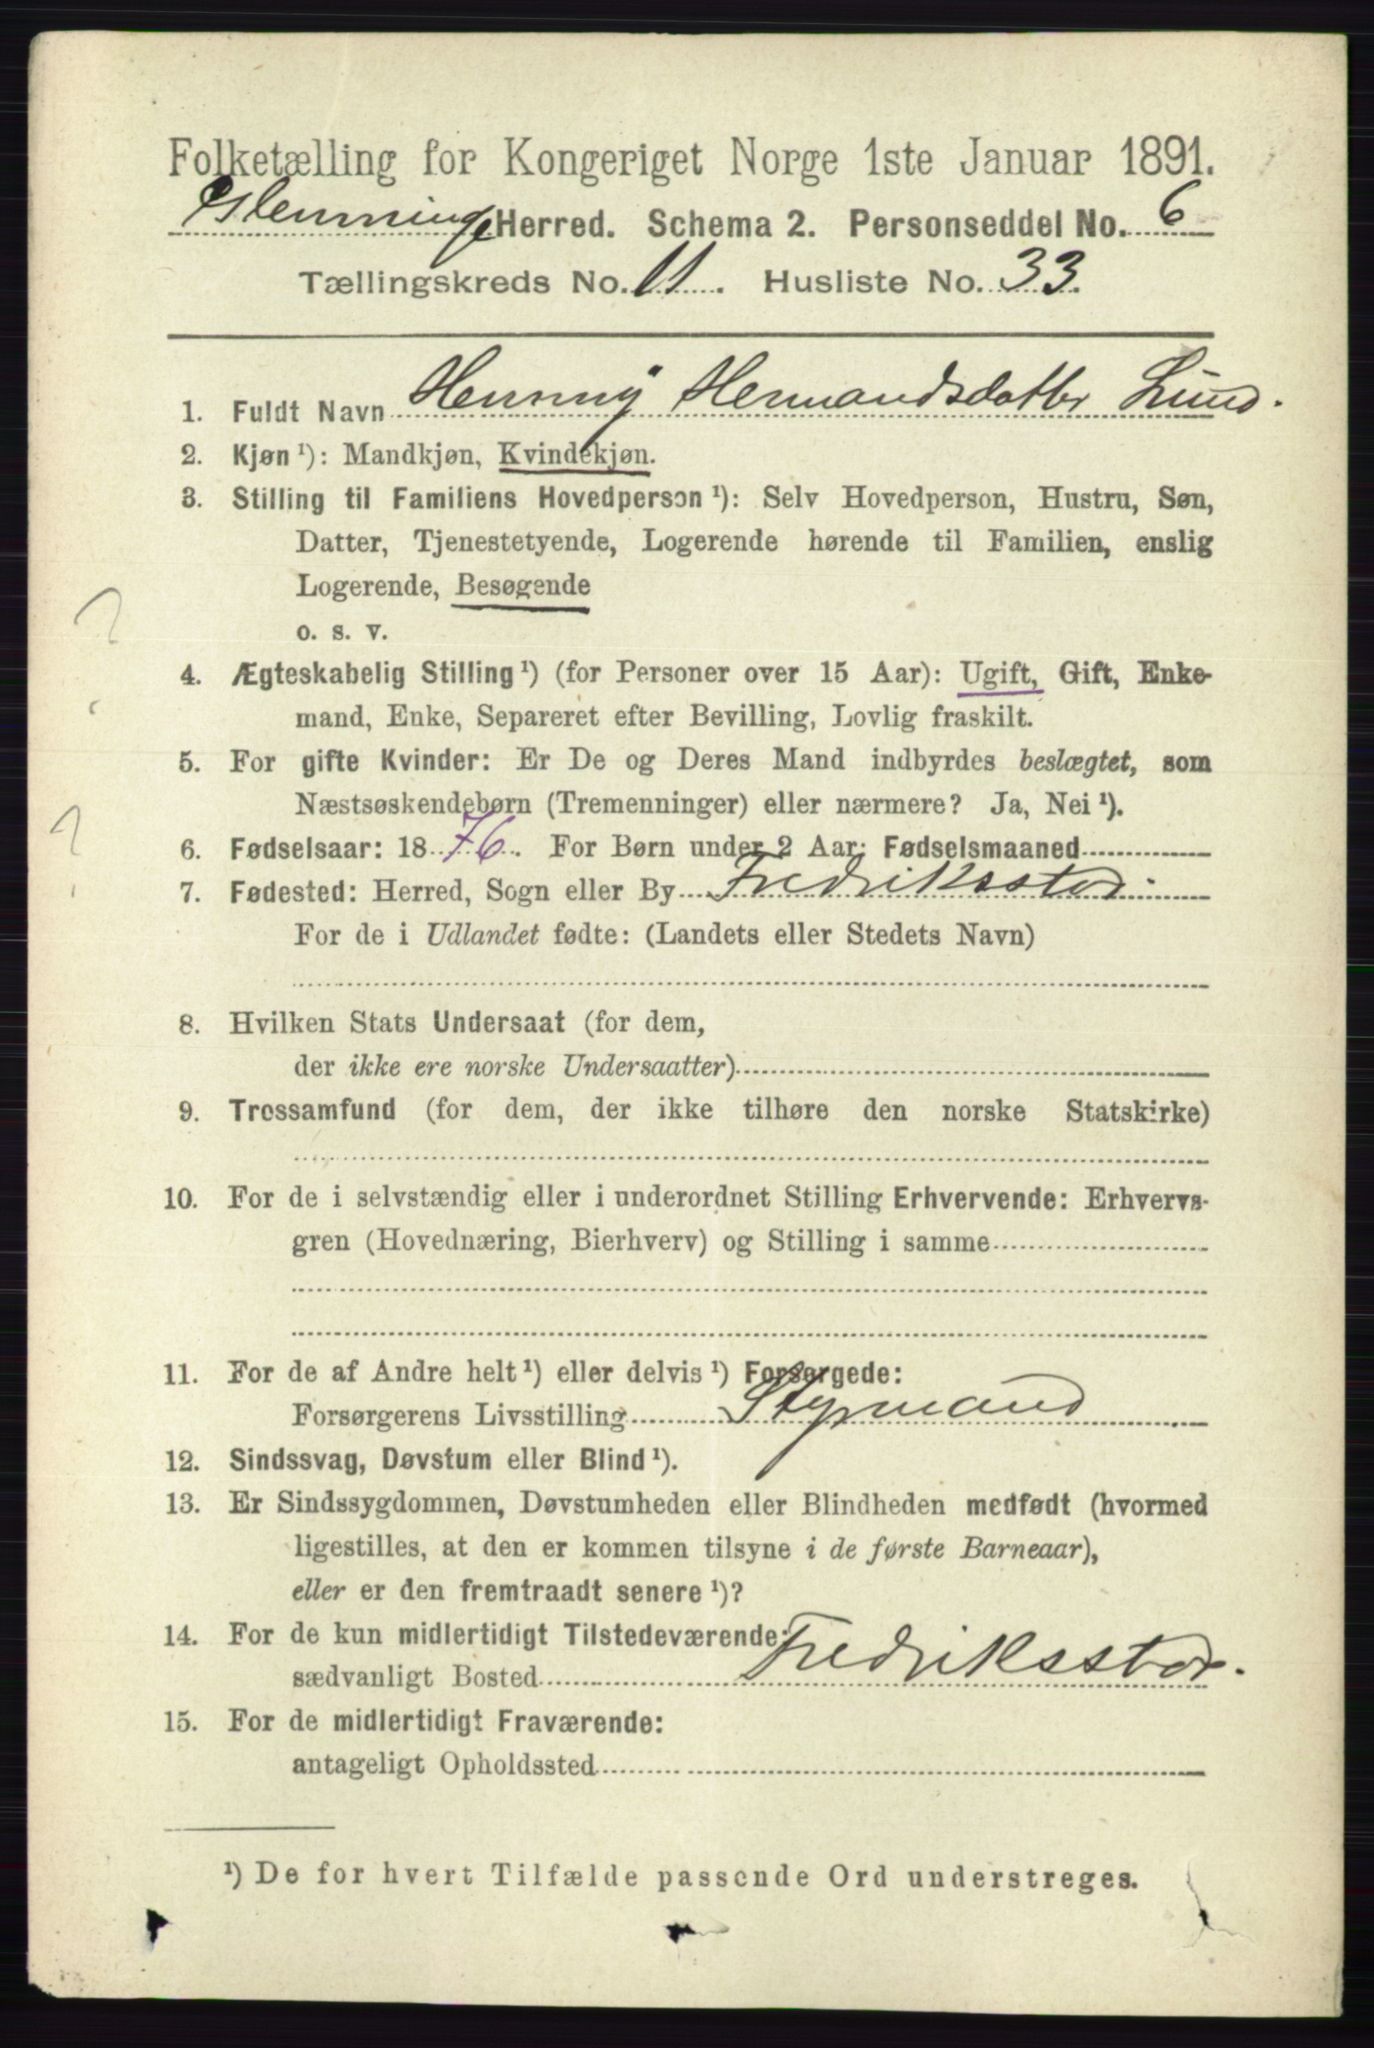 Folketælling for Kongeriget Norge 1ste Januar 1891.
Glemminge Herred. Schema 2. Personseddel No. 6
Tællingskreds No. 11. Husliste No. 33.
1. Fuldt Navn Henny Hermandsdatter Lund.
2. Kjøn ¹): Mandkjøn, Kvindekjøn.
3. Stilling til Familiens Hovedperson ¹): Selv Hovedperson, Hustru, Søn,
Datter, Tjenestetyende, Logerende hørende til Familien, enslig
Logerende, Besøgende
o. s. v.
4. Ægteskabelig Stilling ¹) (for Personer over 15 Aar): Ugift, Gift, Enke-
mand, Enke, Separeret efter Bevilling, Lovlig fraskilt.
5. For gifte Kvinder: Er De og Deres Mand indbyrdes beslægtet, som
Næstsøskendebørn (Tremenninger) eller nærmere? Ja, Nei ¹).
6. Fødselsaar: 1876. For Børn under 2 Aar: Fødselsmaaned
7. Fødested: Herred, Sogn eller By Fredriksstad.
For de i Udlandet fødte: (Landets eller Stedets Navn)
8. Hvilken Stats Undersaat (for dem,
der ikke ere norske Undersaatter)
9. Trossamfund (for dem, der ikke tilhøre den norske Statskirke)
10. For de i selvstændig eller i underordnet Stilling Erhvervende: Erhvervs-
gren (Hovednæring, Bierhverv) og Stilling i samme
11. For de af Andre helt ¹) eller delvis ¹) Forsørgede:
Forsørgerens Livsstilling Styrmand
12. Sindssvag, Døvstum eller Blind ¹).
13. Er Sindssygdommen, Døvstumheden eller Blindheden medfødt (hvormed
ligestilles, at den er kommen tilsyne i de første Barneaar),
eller er den fremtraadt senere ¹)?
14. For de kun midlertidigt Tilstedeværende:
sædvanligt Bosted Fredriksstad.
15. For de midlertidigt Fraværende:
antageligt Opholdssted
¹) De for hvert Tilfælde passende Ord understreges.